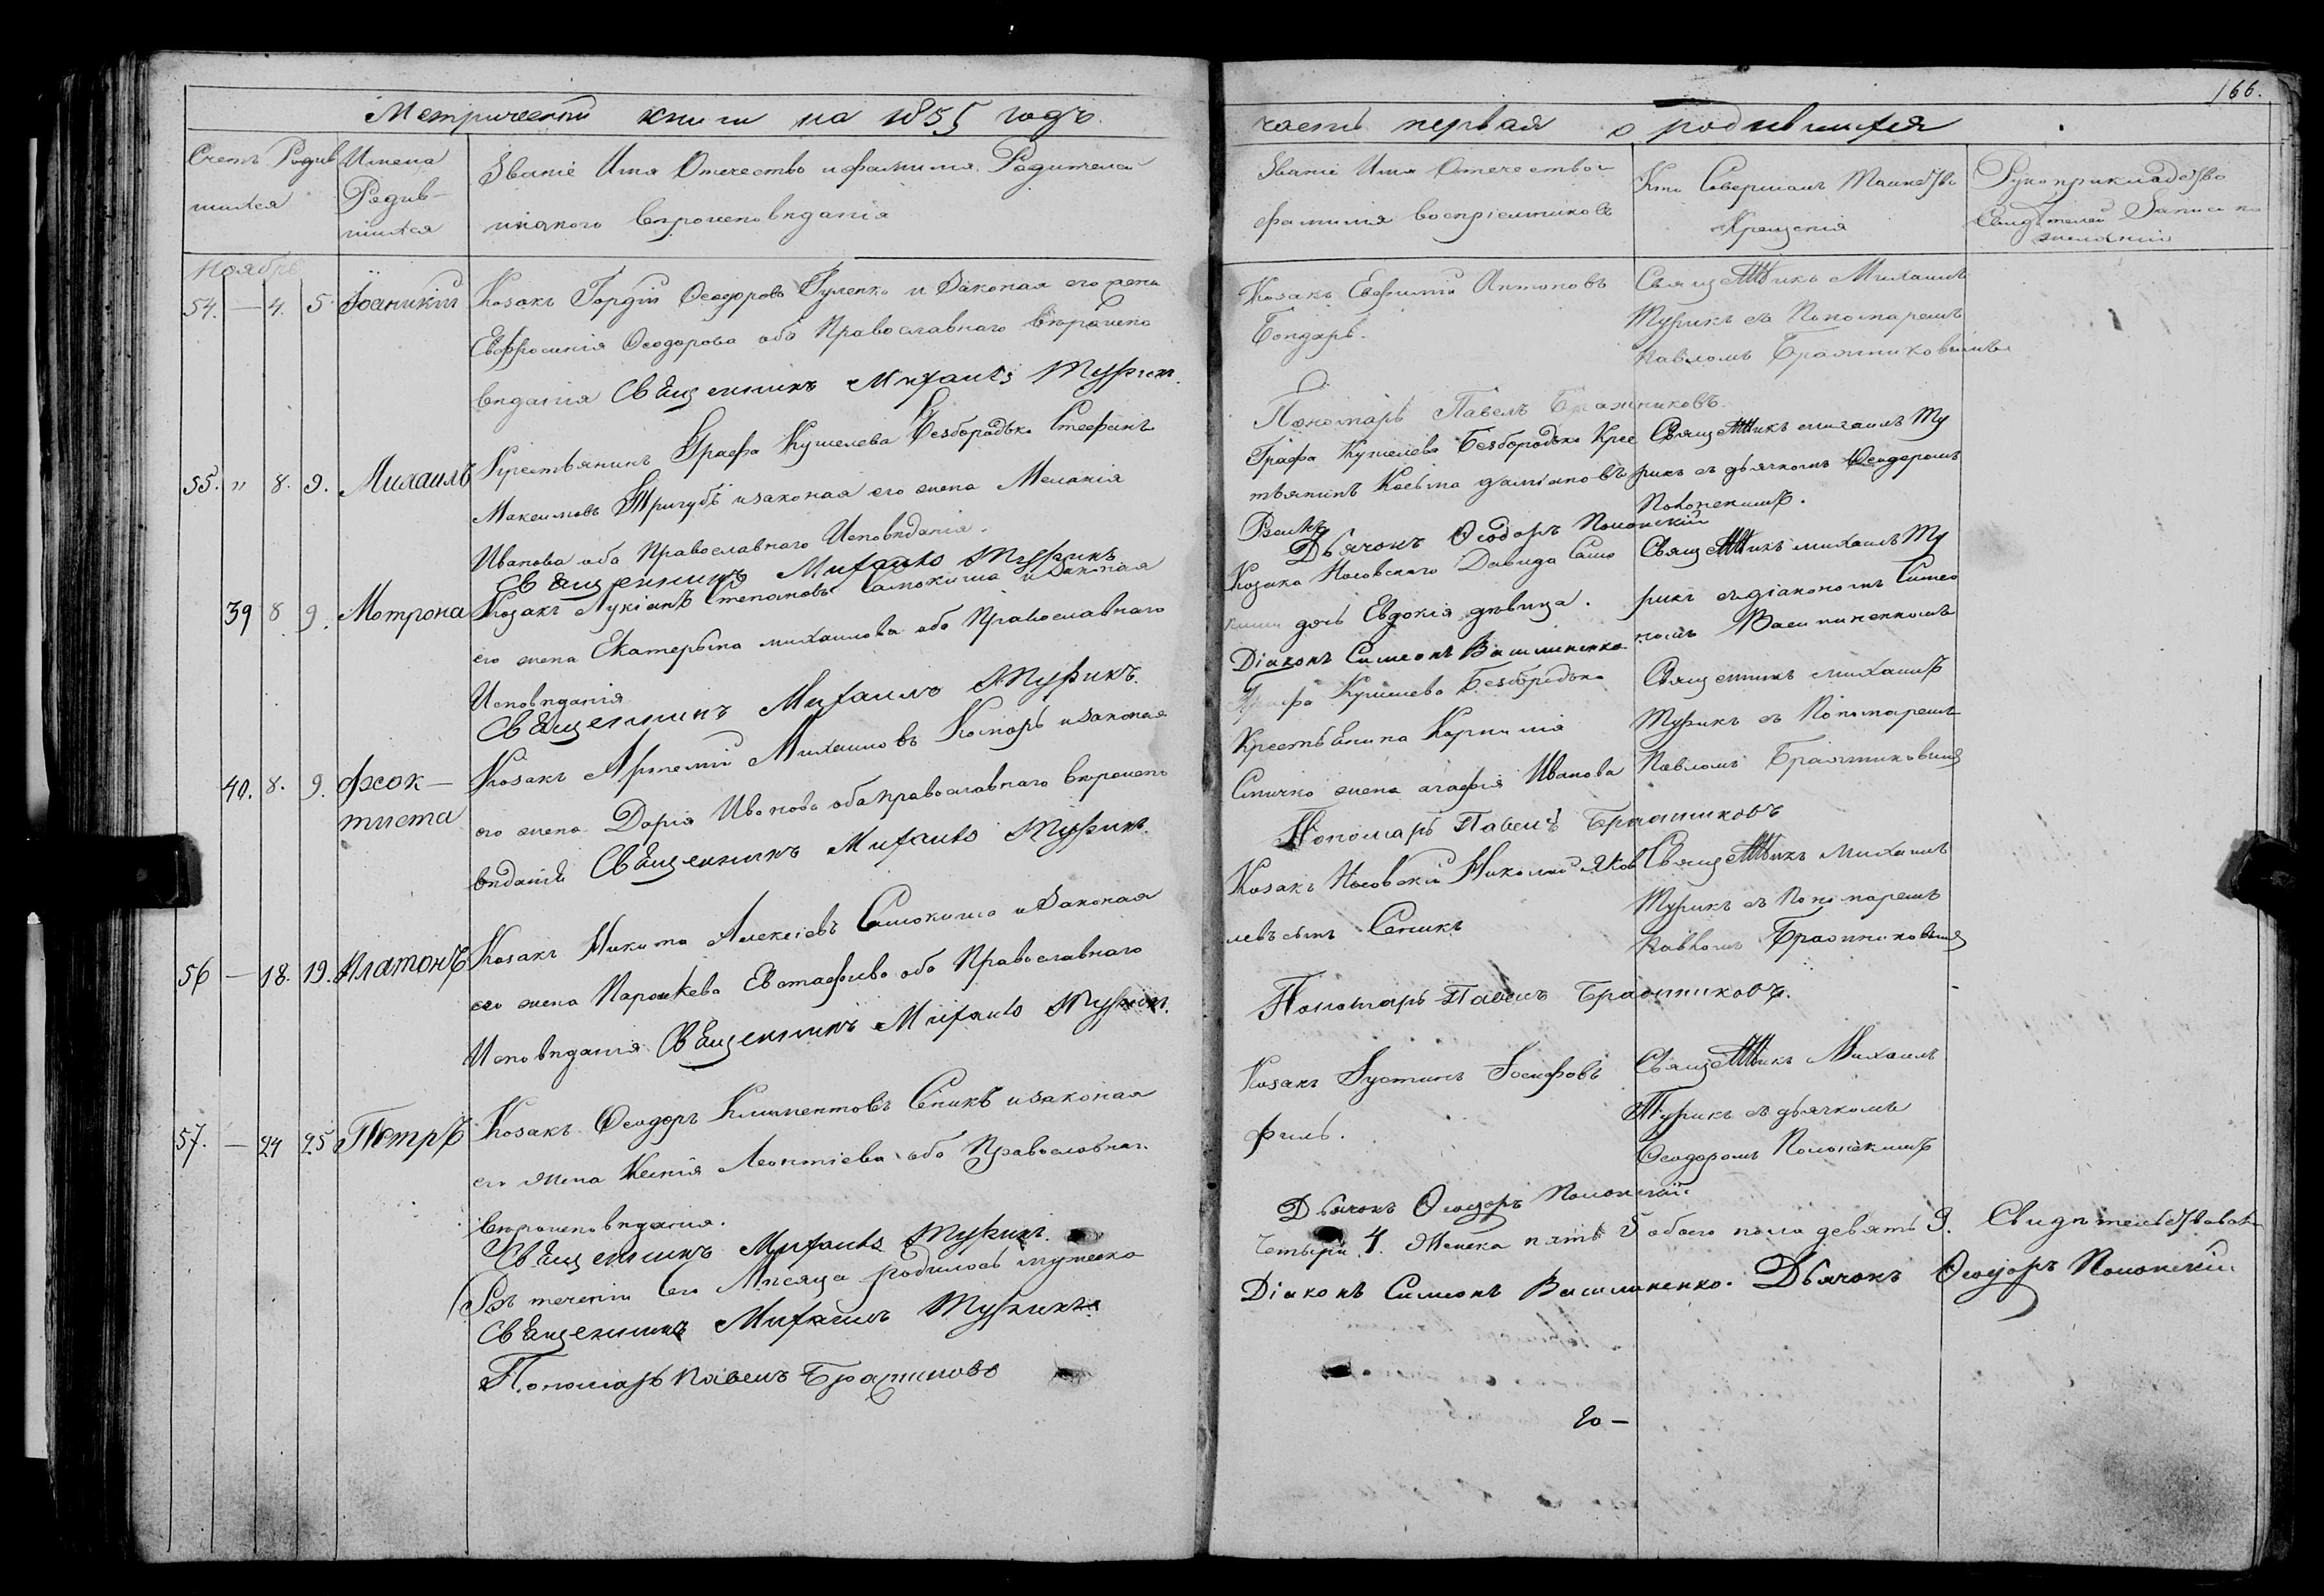 Метрической книги на 1855 годъ.
Счетъ Родив Имена
шихся
Родив-
шихся
Званіе Имя Отечество и фамилія Родителей
и какого вѣроисповѣданія
Ноябрь
54. — 4. 5 Іоаникій Козакъ Гордій Ѳеодоровъ Гуленко и законая его жена
Евфросинія Ѳеодорова обѣ Православнаго вѣроиспо
вѣданія Священникъ Михаилъ Турикъ.
55. „ 8. 9. Михаилъ Крестьянинъ Графа Кушелева Безбородька Стефанъ
Максимовъ Тригубъ и законая его жена Меланія
Иванова оба Православнаго Исповѣданія.
Священникъ Михаилъ Турикъ
39 8 9. Мотрона Козакъ Лукіанъ Степановъ Самокиша и законая
его жена Екатерына михайлова оба Православнаго
Исповѣданія
Священникъ Михаилъ Турикъ.
40. 8. 9. Ѳеок-
тиста
Козакъ Артемій Михаиловъ Комаръ и законая
его жена Дарія Иванова оба православнаго вѣроиспо
вѣданія Священникъ Михаилъ Турикъ.
56 — 18. 19. Платонъ Козакъ Никита Алексіевъ Самокиша и законая
его жена Параскева Евстафіева оба Православнаго
Исповѣданія Священникъ Михаилъ Турикъ.
57. — 24 25 Петръ Козакъ Ѳеодоръ Климентовъ Сѣпикъ и законая
его жена Ксенія Леонтіева оба Православнаго
вѣроисповѣданія.
Священникъ Михаилъ Турикъ.
Въ теченіи сего Мѣсяца родилось мужеска
Священникъ Михаилъ Турикъ
Пономарь Павелъ Бражниковъ
166.
часть первая о родившихся
Званіе Имя Отечество и
фамилія воспріемниковъ
Кто Совершалъ Таинство
Крещенія
Рукоприкладство
Свидѣтелей Записи по
желанію
Козакъ Евфимій Антоновъ
Бондарь.
Священникъ Михаилъ
Турикъ съ Пономаремъ
Павломъ Бражниковымъ
Пономарь Павелъ Бражниковъ.
Графа Кушелева Безбородька Крес
тьянинъ Косьма даміановъ
Священникъ михаилъ Ту
рикъ съ дьячкомъ Ѳеодоромъ
Полонскимъ.
Дьячокъ Ѳеодоръ Полонскій
Козака Носовскаго Давида Само
киши дочь Евдокія дѣвица.
Священникъ михаилъ Ту
рикъ съ діакономъ Симео
номъ Василиненкомъ
Діаконъ Симеонъ Василиненко
Графа Кушелева Безбородька
Крестьянина Корнилія
Спичко жена агафія Иванова
Священникъ михаилъ
Турикъ съ Пономаремъ
Павломъ Бражниковымъ
Пономарь Павелъ Бражниковъ
Козакъ Носовскій Николай Яков
левъ сынъ Сѣпикъ
Священникъ михаилъ
Турикъ съ Пономаремъ
Павломъ Бражниковымъ
Пономарь Павелъ Бражниковъ.
Козакъ Іустинъ Іосифовъ
филь.
Священникъ Михаилъ
Турикъ съ дьячкомъ
Ѳеодоромъ Полонскимъ
Дьячокъ Ѳеодоръ Полонскій
четыри 4. Женска пять 5 обоего пола девять 9. Свидѣтельствовали
Діаконъ Симеонъ Василиненко. Дьячокъ Ѳеодоръ Полонскій